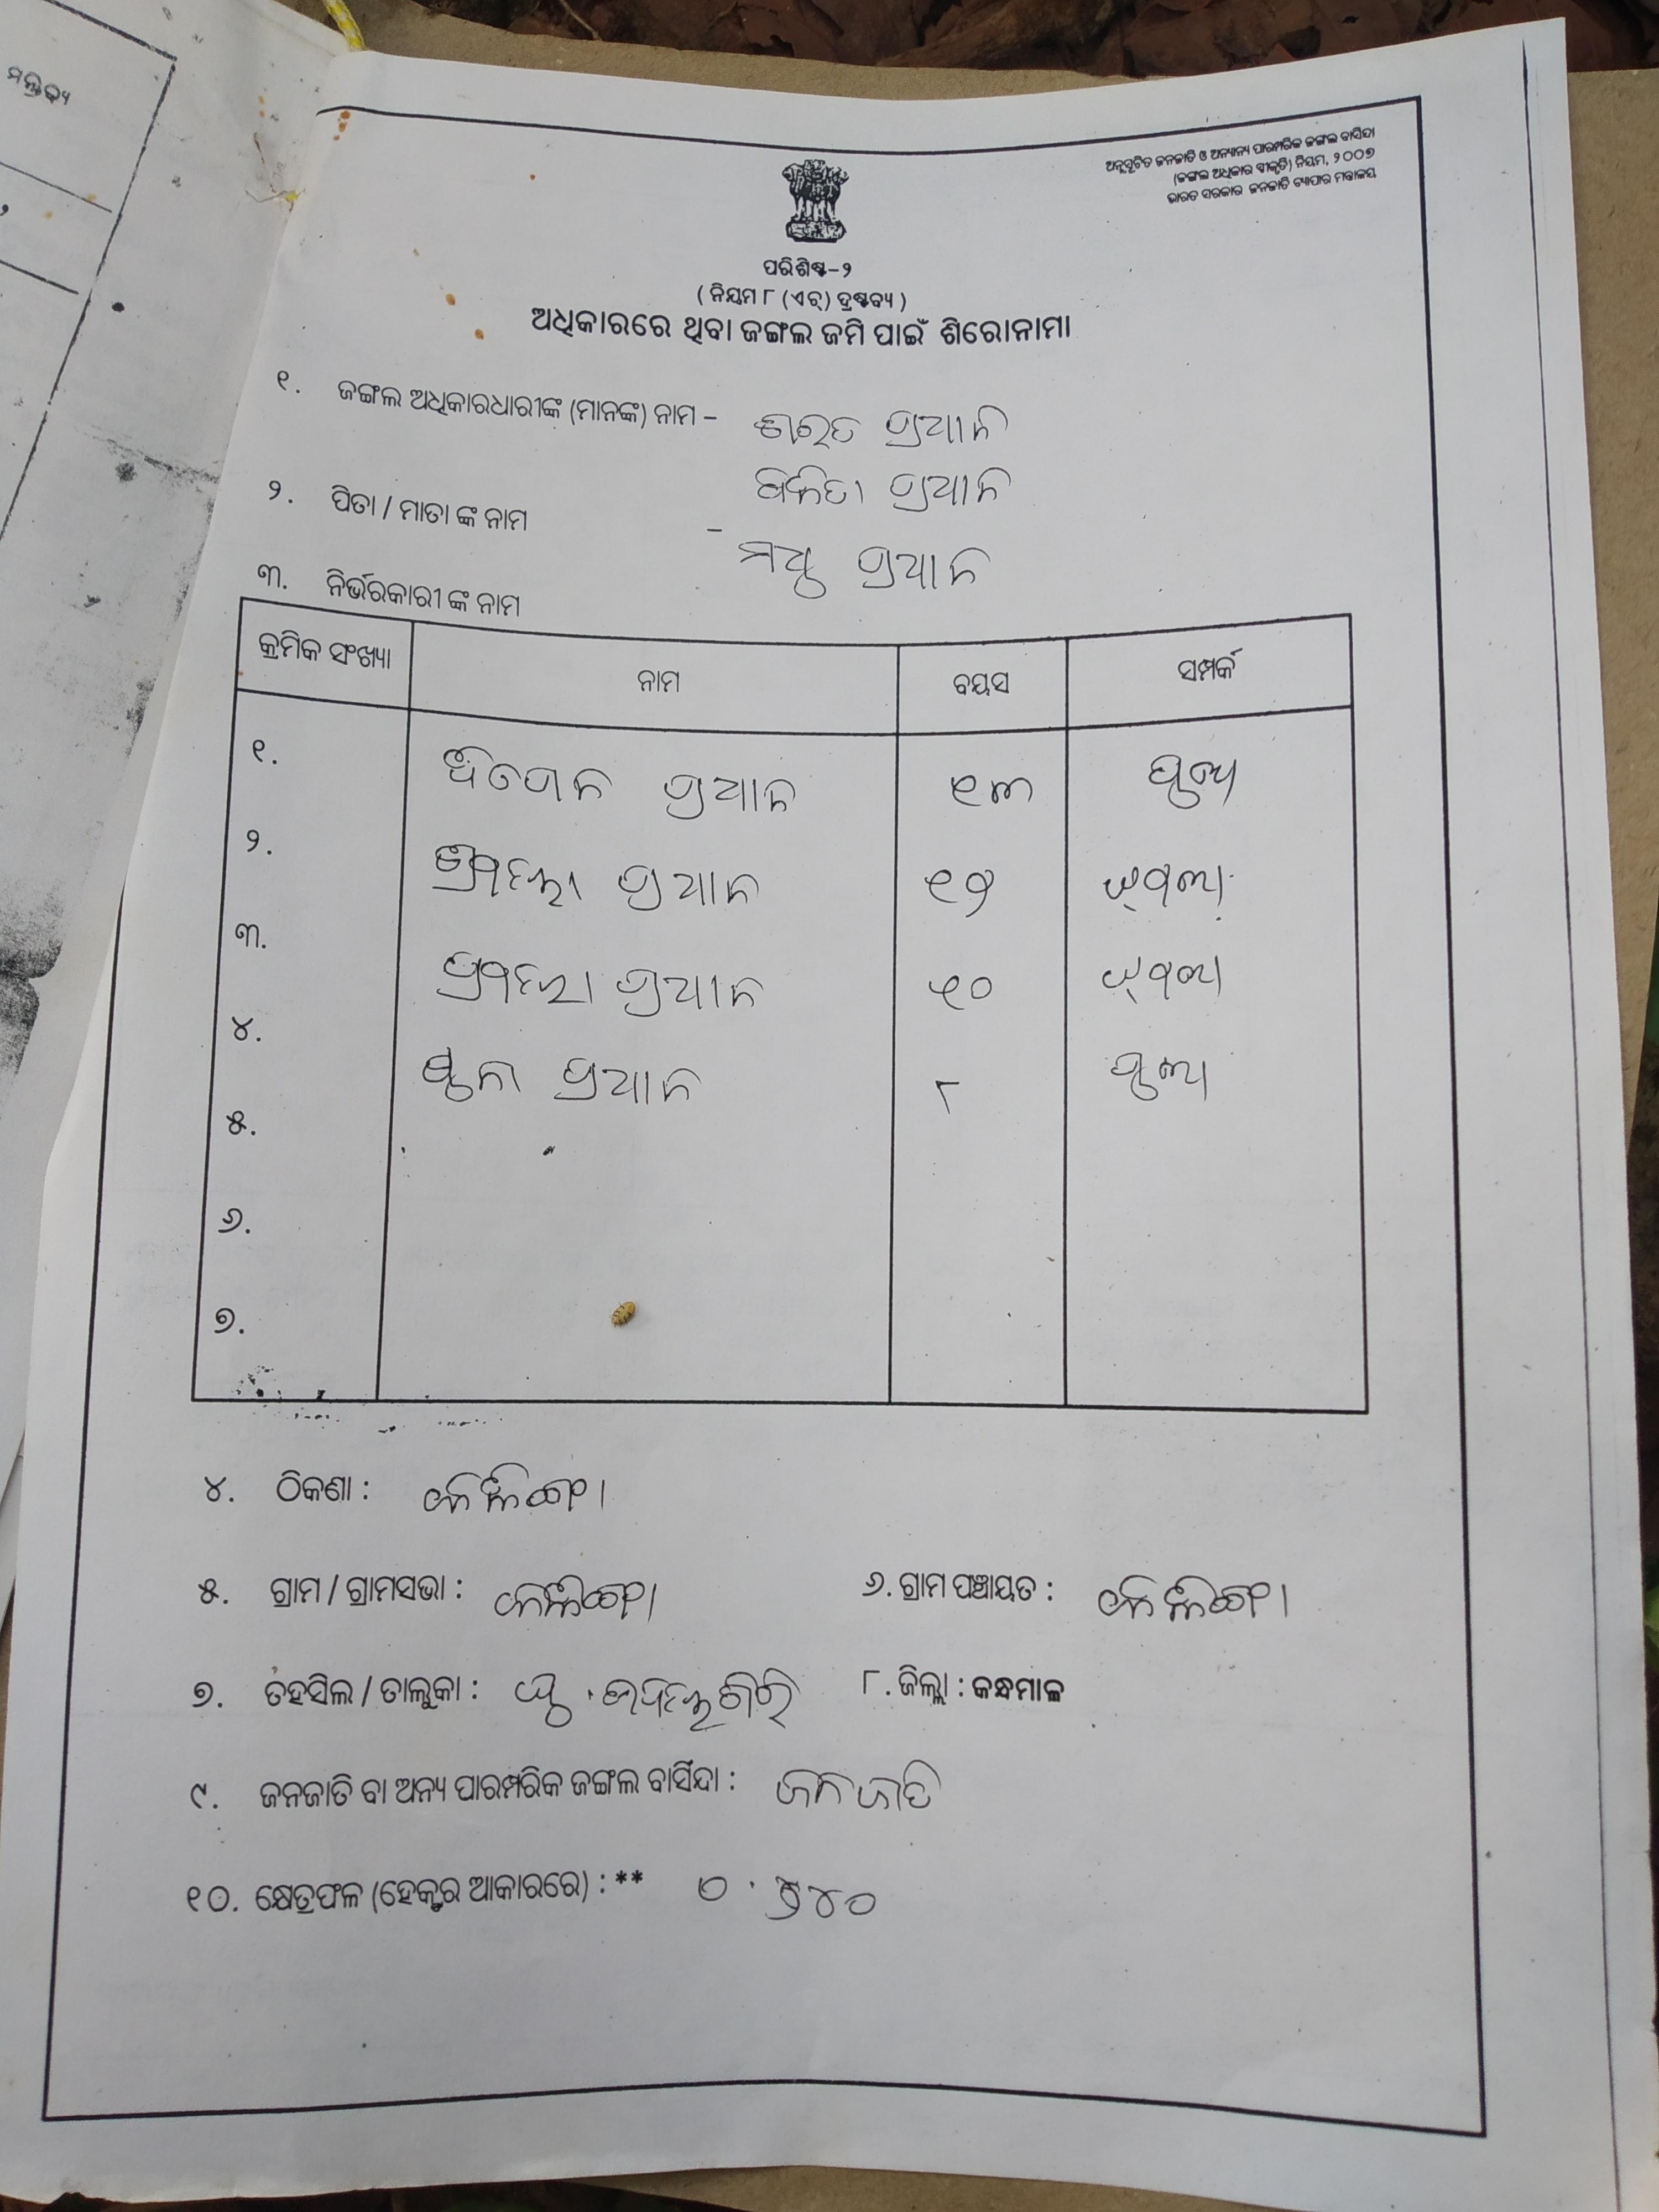 ମନ୍ତବ୍ୟ
ଅନୁସୂଚିତ ଜନଜାତି ଓ ଅନ୍ୟାନ୍ୟ ପାରମ୍ପରିକ ଜଙ୍ଗଲ ବାସିନ୍ଦା
(ଜଙ୍ଗଲ ଅଧିକାର ସ୍ୱୀକୃତି) ନିୟମ, ୨୦୦୭
ଭାରତ ସରକାର ଜନଜାତି ବ୍ୟାପାର ମନ୍ତ୍ରାଳୟ
ପରିଶିଷ୍ଟ-୨
( ନିୟମ ୮ (ଏଚ୍) ଦ୍ରଷ୍ଟବ୍ୟ )
ଅଧିକାରରେ ଥିବା ଜଙ୍ଗଲ ଜମି ପାଇଁ ଶିରୋନାମା
୧. ଜଙ୍ଗଲ ଅଧିକାରଧାରୀଙ୍କ (ମାନଙ୍କ) ନାମ - ଭାରତ ପ୍ରଧାନ
ପ୍ରଧାନ
୨. ପିତା / ମାତା ଙ୍କ ନାମ - ମଧୁ ପ୍ରଧାନ
୩. ନିର୍ଭରକାରୀ ଙ୍କ ନାମ
କ୍ରମିକ ସଂଖ୍ୟା ନାମ ବୟସ ସମ୍ପର୍କ
୧. ପ୍ରଧାନ ୧୩ ପୁଅ
୨. ପ୍ରଧାନ ୧୨ ଝିଅ
୩. ପ୍ରଧାନ ୧୦ ଝିଅ
୪. ପ୍ରଧାନ ୮ ପୁଅ
୫.
୬.
୭.
୪. ଠିକଣା :
୫. ଗ୍ରାମ / ଗ୍ରାମସଭା : ୬. ଗ୍ରାମ ପଞ୍ଚାୟତ :
୭. ତହସିଲ / ତାଲୁକା : ଉଦୟଗିରି ୮. ଜିଲ୍ଲା : କନ୍ଧମାଳ
୯. ଜନଜାତି ବା ଅନ୍ୟ ପାରମ୍ପରିକ ଜଙ୍ଗଲ ବାସିନ୍ଦା : ଜନଜାତି
୧୦. କ୍ଷେତ୍ରଫଳ (ହେକ୍ଟର ଆକାରରେ) : ** ୦.୫୪୦